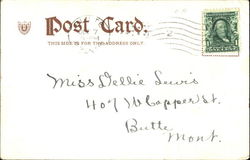 Post Card.
THIS SIDE IS FOR THE ADDRESS ONLY.
Miss Dellie Lewis
407 W Copper St.
Butte
Mont.